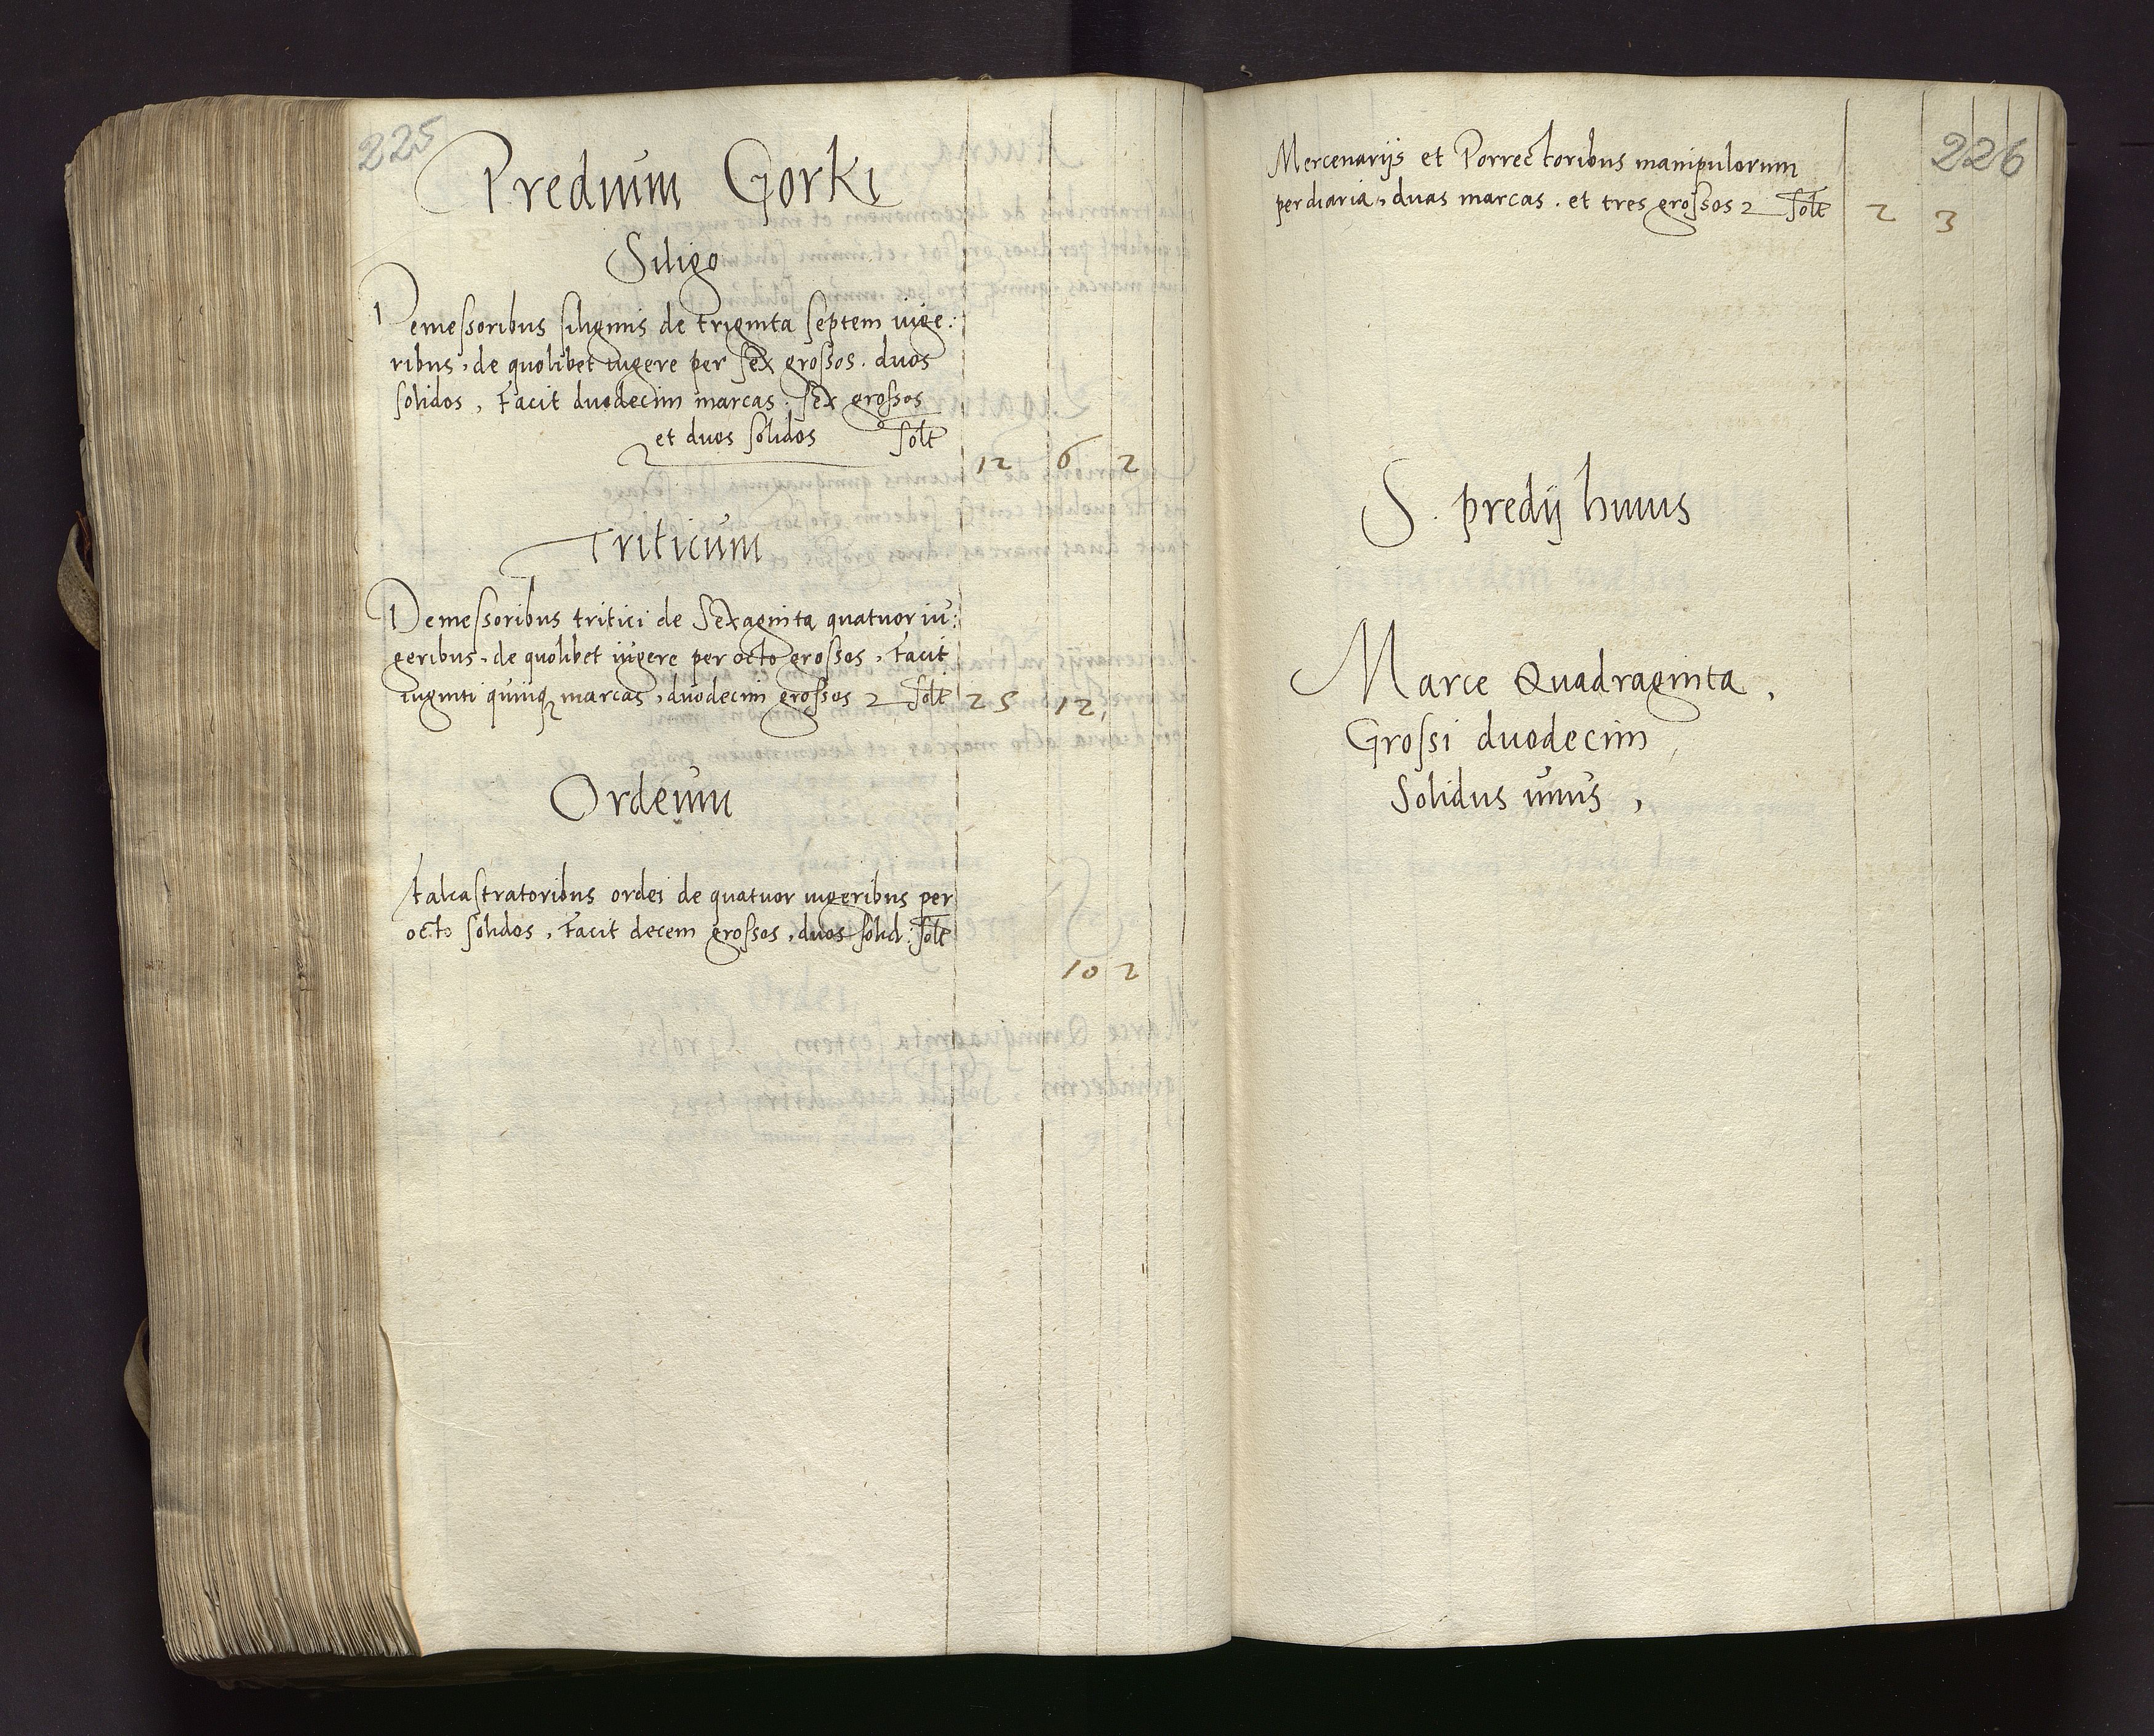 225
Predium Gorki
Siligo
Demessoribus siliginis de triginta septem iuge:
ribus, de quolibet iugere per sex grossos. duos
solidos, Facit duodecim marcas, sex grossos
et duos solidos solt
12 6 2
Triticum
Demessoribus tritici de Sexaginta quatuor iu:
geribus, de quolibet iugere per octo grossos, Facit
viginti quinq marcas, duodecim grossos 2 solt 25 12
Ordeum
Falcastratoribus ordei de quatuor iugeribus per
octo solidos, Facit decem grossos, duos solid: solt
10 2
226
Mercenarijs et Porrectoribus manipulorum
per diaria, duas marcas. et tres grossos 2 solt 2 3
S. predij huius
Marce Quadraginta,
Grossi duodecim
Solidus unus,